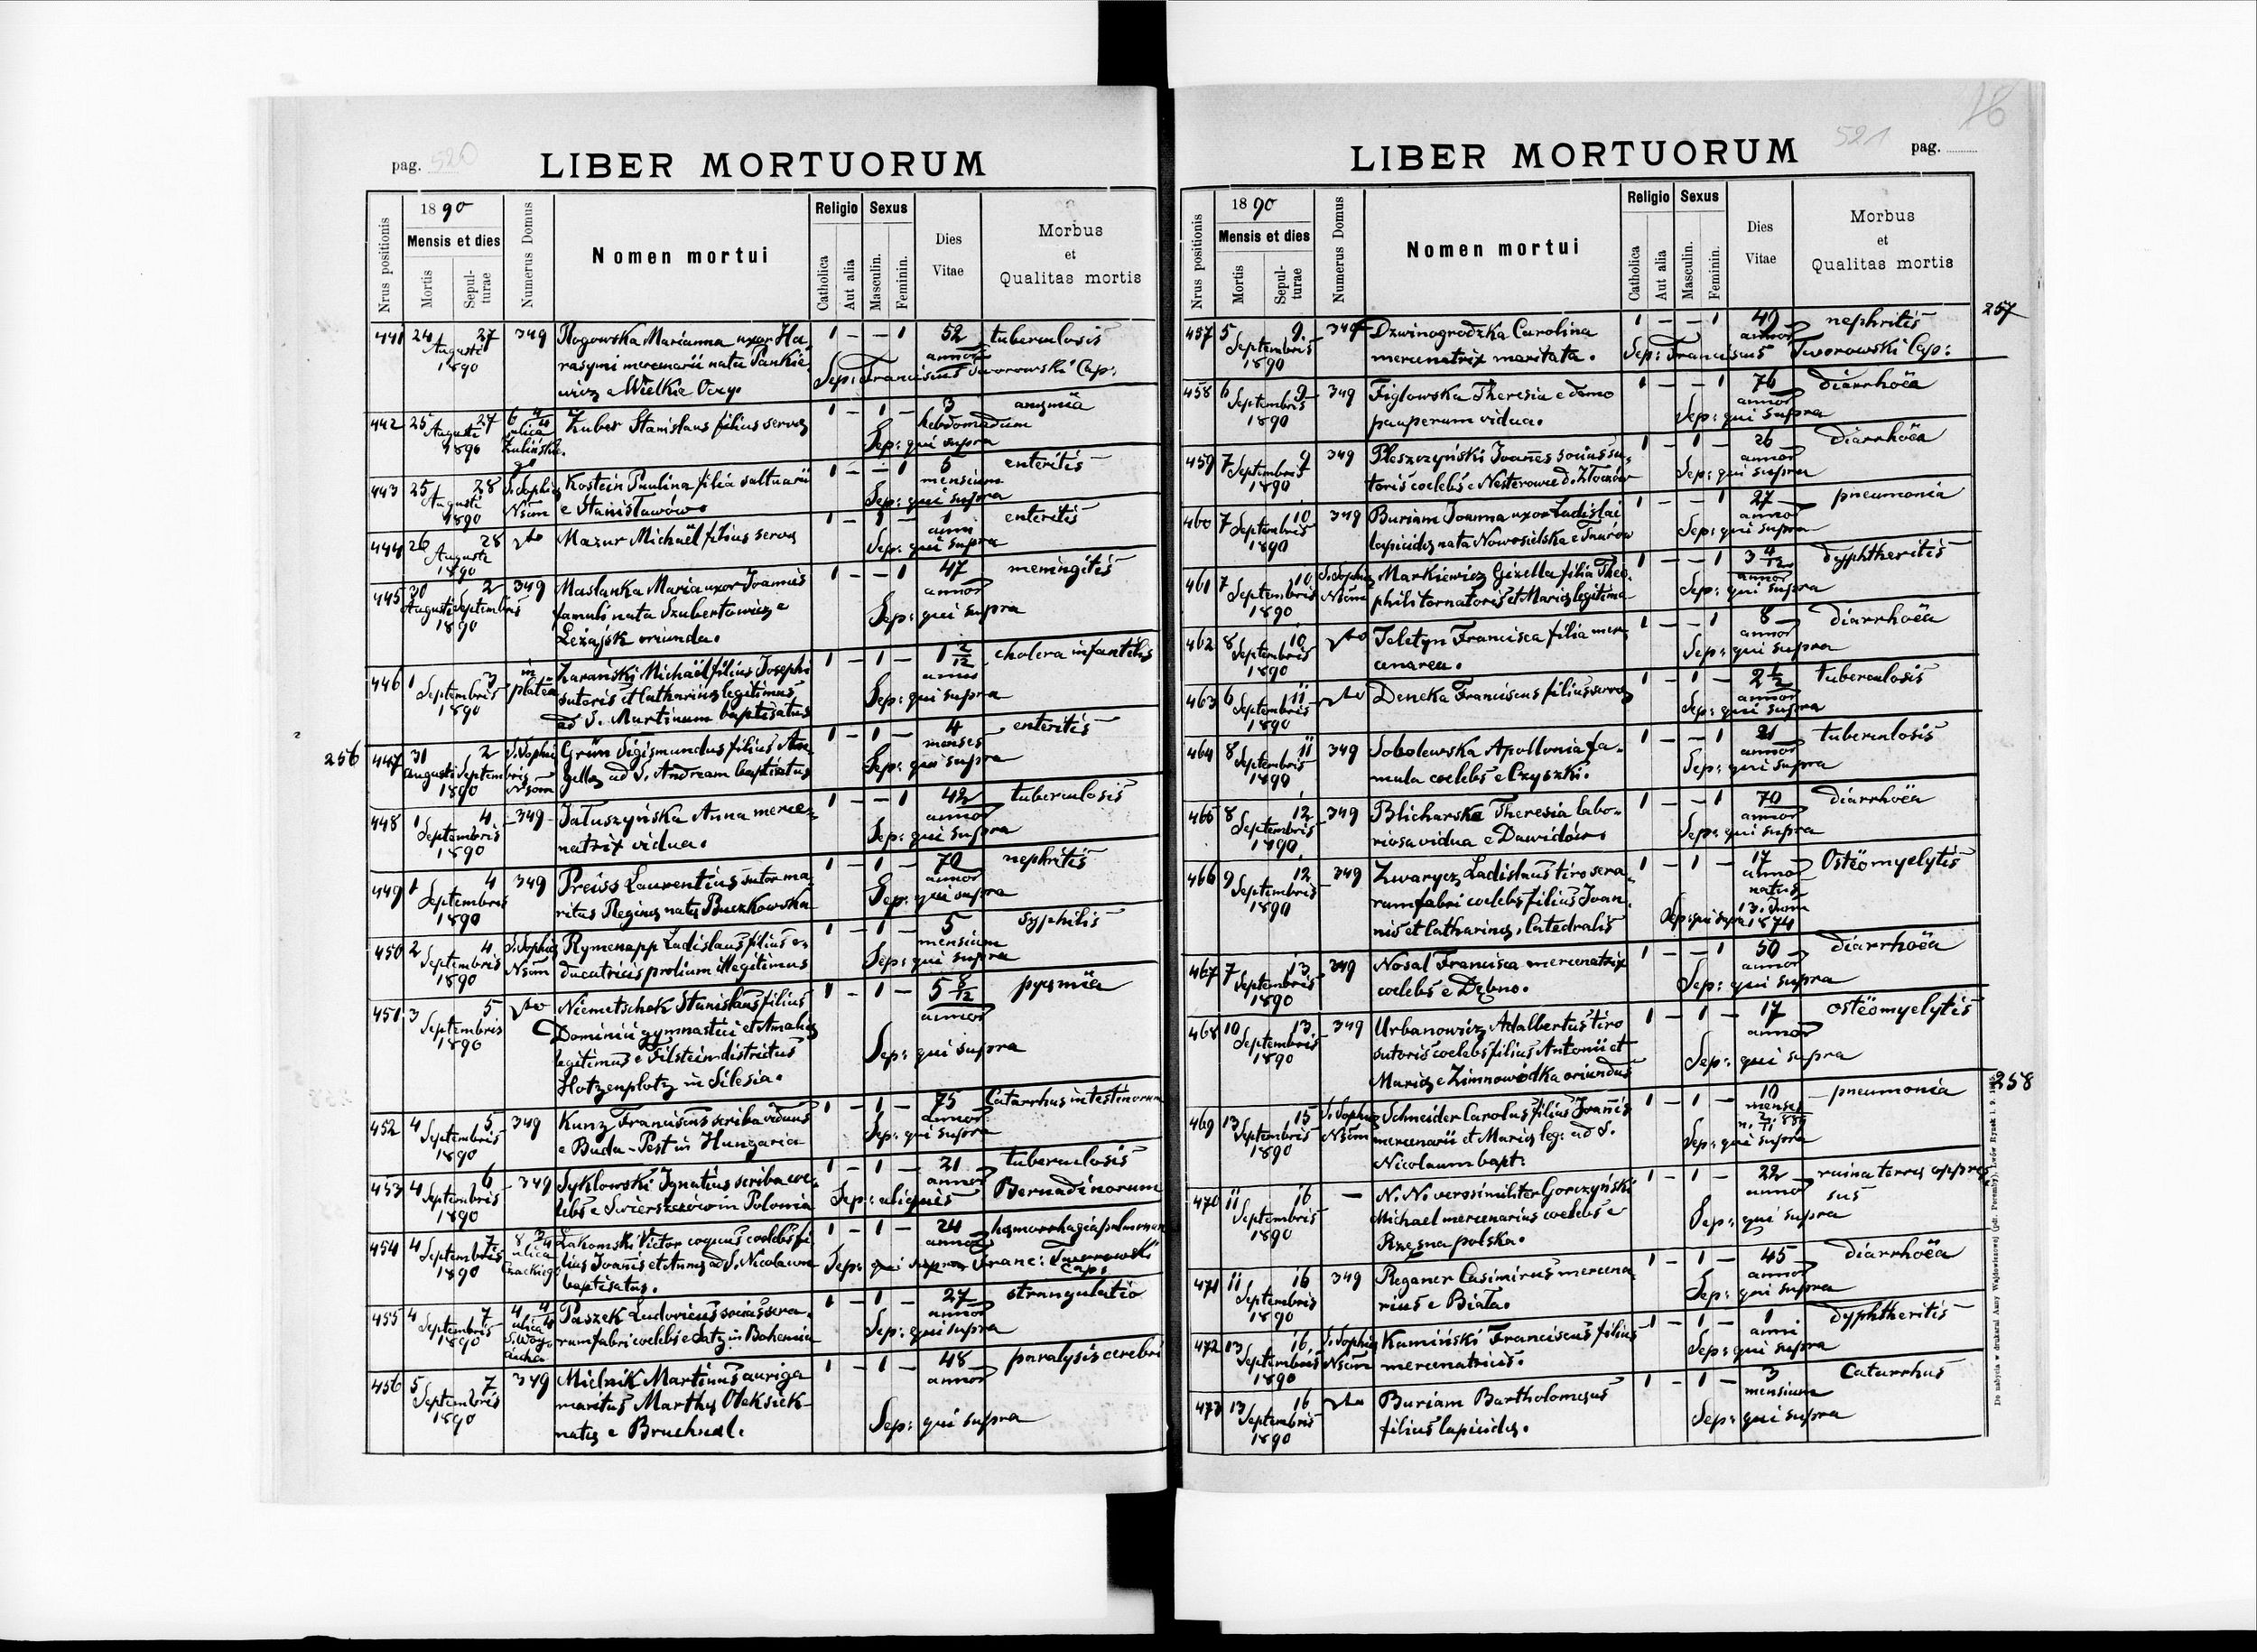 pag. 520
LIBER MORTUORUM
Nrus positionis
1890
Mensis et dies
Mortis
Sepul-
turae
Numerus Domus
Nomen mortui
Religio
Catholica
Aut alia
Sexus
Masculin.
Feminin.
Dies
Vitae
Morbus
et
Qualitas mortis
441 24 27 349 Rogowska Marianna uxor Ha- 1 – – 1 52 tuberculosis
Augusti rasymi mercenarii nata Pankie- annor
1890 wicz e Wielkie Oczy. Sep: Franciscus Tworowski Cap:
442 25 27 6 4/4 Zuber Stanislaus filius servae 1 – 1 – 3 anaemia
Augusti ulica hebdomadum
1890 Sep: qui supra
443 25 28 S. Sophiae Kostein Paulina filia saltuarii 1 – – 1 5 enteritis
Augusti Nsum e Stanisławów. mensium
1890 Sep: qui supra
444 26 28 dto Mazur Michaël filius servae 1 – 1 – 1 enteritis
Augusti anni
1890 Sep: qui supra
445 30 2 349 Maslanka Maria uxor Joannis 1 – – 1 47 meningitis
Augusti Septembris famuli nata Szubertowicz e annor
1890 Leżajsk oriunda. Sep: qui supra
446 1 3 in platea Zarański Michaël filius Josephi 1 – 1 – 1 2/12 cholera infantilis
Septembris sutoris et Catharinae legitimus anni
1890 ad S. Martinum baptisatus Sep: qui supra
256
447 31 2 S. Sophiae Grün Sigismundus filius An- 1 – 1 – 4 enteritis
Augusti Septembris Nsum gellae ad S. Andream baptisatus menses
1890 Sep: qui supra
448 1 4 349 Jałuszyńska Anna merce- 1 – – 1 42 tuberculosis
Septembris natrix vidua. annor
1890 Sep: qui supra
449 1 4 349 Preiss Laurentius sutor ma- 1 – 1 – 70 nephritis
Septembris ritus Reginae natae Buczkowska annor
1890 Sep: qui supra
450 2 4 S. Sophiae Rymenapp Ladislaus filius e- 1 – 1 – 5 syphilis
Septembris Nsum ducatricis prolium illegitimus mensium
1890 Sep: qui supra
451 3 5 dto Niemetschek Stanislaus filius 1 – 1 – 5 8/12 pyaemia
Septembris Dominici gymnastici et Amaliae annor
1890 legitimus e Füllstein districtus
Hotzenplotz in Silesia. Sep: qui supra
452 4 5 349 Kunz Franciscus scriba viduus 1 – 1 – 75 Catarrhus intestinorum
Septembris e Buda-Pest in Hungaria annor
1890 Sep: qui supra
453 4 6 349 Sykłowski Ignatius scriba coe- 1 – 1 – 21 tuberculosis
Septembris lebs e Świerszczów in Polonia annor
1890 Sep: aliquis Bernadinorum
454 4 7 ulica Czackiego Łakomski Victor coquus coelebs fi- 1 – 1 – 24 haemorrhagia pulmonum
Septembris lius Joannis et Annae ad S. Nicolaum annor
1890 baptisatus. Sep: qui supra Franc: Tworowski Cap:
455 4 7 4 4/4 ulica S. Woyciecha Paszek Ludovicus socius sera- 1 – 1 – 27 strangulatio
Septembris rum fabri coelebs e Satz in Bohemia annor
1890 Sep: qui supra
456 5 7 349 Mielnik Martinus auriga 1 – 1 – 48 paralysis cerebri
Septembris maritus Marthae Oleksiek annor
1890 natae e Bruchnal. Sep: qui supra
521 pag.
LIBER MORTUORUM
Nrus positionis
1890
Mensis et dies
Mortis
Sepul-
turae
Numerus Domus
Nomen mortui
Religio
Catholica
Aut alia
Sexus
Masculin.
Feminin.
Dies
Vitae
Morbus
et
Qualitas mortis
257
457 5 9 349 Dzwinogrodzka Carolina 1 – – 1 49 nephritis
Septembris mercenatrix maritata. annor
1890 Sep: Franciscus Tworowski Cap:
458 6 9 349 Figlowska Theresia e domo 1 – – 1 76 diarrhoëa
Septembris pauperum vidua. annor
1890 Sep: qui supra
459 7 9 349 Pleszczyński Joannes socius su- 1 – 1 – 26 diarrhoëa
Septembris toris coelebs e Nesterowce d. Złoczów annor
1890 Sep: qui supra
460 7 10 349 Buriam Joanna uxor Ladislai 1 – – 1 27 pneumonia
Septembris lapicidae nata Nowosielska e Tarnów annor
1890 Sep: qui supra
461 7 10 S. Sophiae Markiewicz Gizella filia Theo- 1 – – 1 3 4/12 dyphtheritis
Septembris Nsum phili tornatoris et Mariae legitima annor
1890 Sep: qui supra
462 8 10 dto Teletyn Francisca filia mer- 1 – – 1 8 diarrhoëa
Septembris cenarea. annor
1890 Sep: qui supra
463 6 11 dto Deneka Franciscus filius servae 1 – 1 – 2 1/2 tuberculosis
Septembris annor
1890 Sep: qui supra
464 8 11 349 Sobolewska Apollonia fa- 1 – – 1 21 tuberculosis
Septembris mula coelebs e Czyszki. annor
1890 Sep: qui supra
465 8 12 349 Blicharska Theresia labo- 1 – – 1 70 diarrhoëa
Septembris riosa vidua e Dawidów. annor
1890 Sep: qui supra
466 9 12 349 Zwarycz Ladislaus tiro sera- 1 – 1 – 17 Ostëomyelytis
Septembris rum fabri coelebs filius Joan- annor
1890 nis et Catharinae, Catedralis natus
Sep: qui supra 13. Juni 1874
467 7 13 349 Nosal Francisca mercenatrix 1 – – 1 50 diarrhoëa
Septembris coelebs e Dębno. annor
1890 Sep: qui supra
468 10 13 349 Urbanowicz Adalbertus tiro 1 – 1 – 17 ostëomyelytis
Septembris sutoris coelebs filius Antonii et annor
1890 Mariae e Zimnowódka oriundus Sep: qui supra
258
469 13 15 S. Sophiae Schneider Carolus filius Joannis 1 – 1 – 10 pneumonia
Septembris Nsum mercenarii et Mariae leg: ad S. menses
1890 Nicolaum bapt: Sep: qui supra
470 11 16 – N. N. verosimiliter Gorczyński 1 – 1 – 22 ruina terrae oppres-
Septembris Michael mercenarius coelebs e annor sus
1890 Rzęsna polska. Sep: qui supra
471 11 16 349 Reganer Casimirus mercena- 1 – 1 – 45 diarrhoëa
Septembris rius e Biała. annor
1890 Sep: qui supra
472 13 16 S. Sophiae Kamiński Franciscus filius 1 – 1 – 1 dyphtheritis
Septembris Nsum mercenatricis. anni
1890 Sep: qui supra
473 13 16 dto Buriam Bartholomaeus 1 – 1 – 3 Catarrhus
Septembris filius lapicidae. mensium
1890 Sep: qui supra